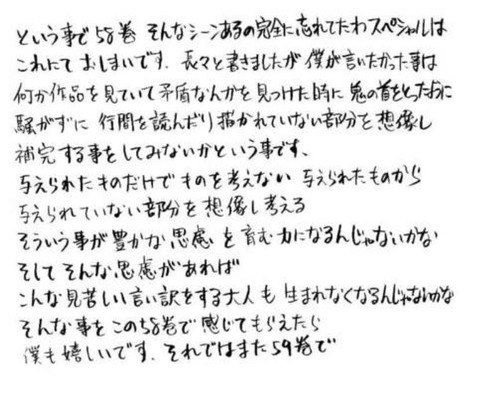 という事で58巻 そんなシーンあるの完全に忘れてたわスペシャルは
これにて おしまいです. 長々と書きましたが 僕が言いたかった事は
何か作品を見ていて矛盾なんかを見つけた時に 鬼の首をとったように
騒がずに 行間を読んだり描かれていない部分を想像し
補完する事をしてみないかという事です、
与えられたものだけでものを考えない 与えられたものから
与えられていない部分を想像し考える
そういう事が豊かな思慮を育む力になるんじゃないかな
そしてそんな思慮があれば
こんな見苦しい言い訳をする大人も 生まれなくなるんじゃないかな
そんな事をこの58巻で感じてもらえたら
僕も嬉しいです. それではまた59巻で